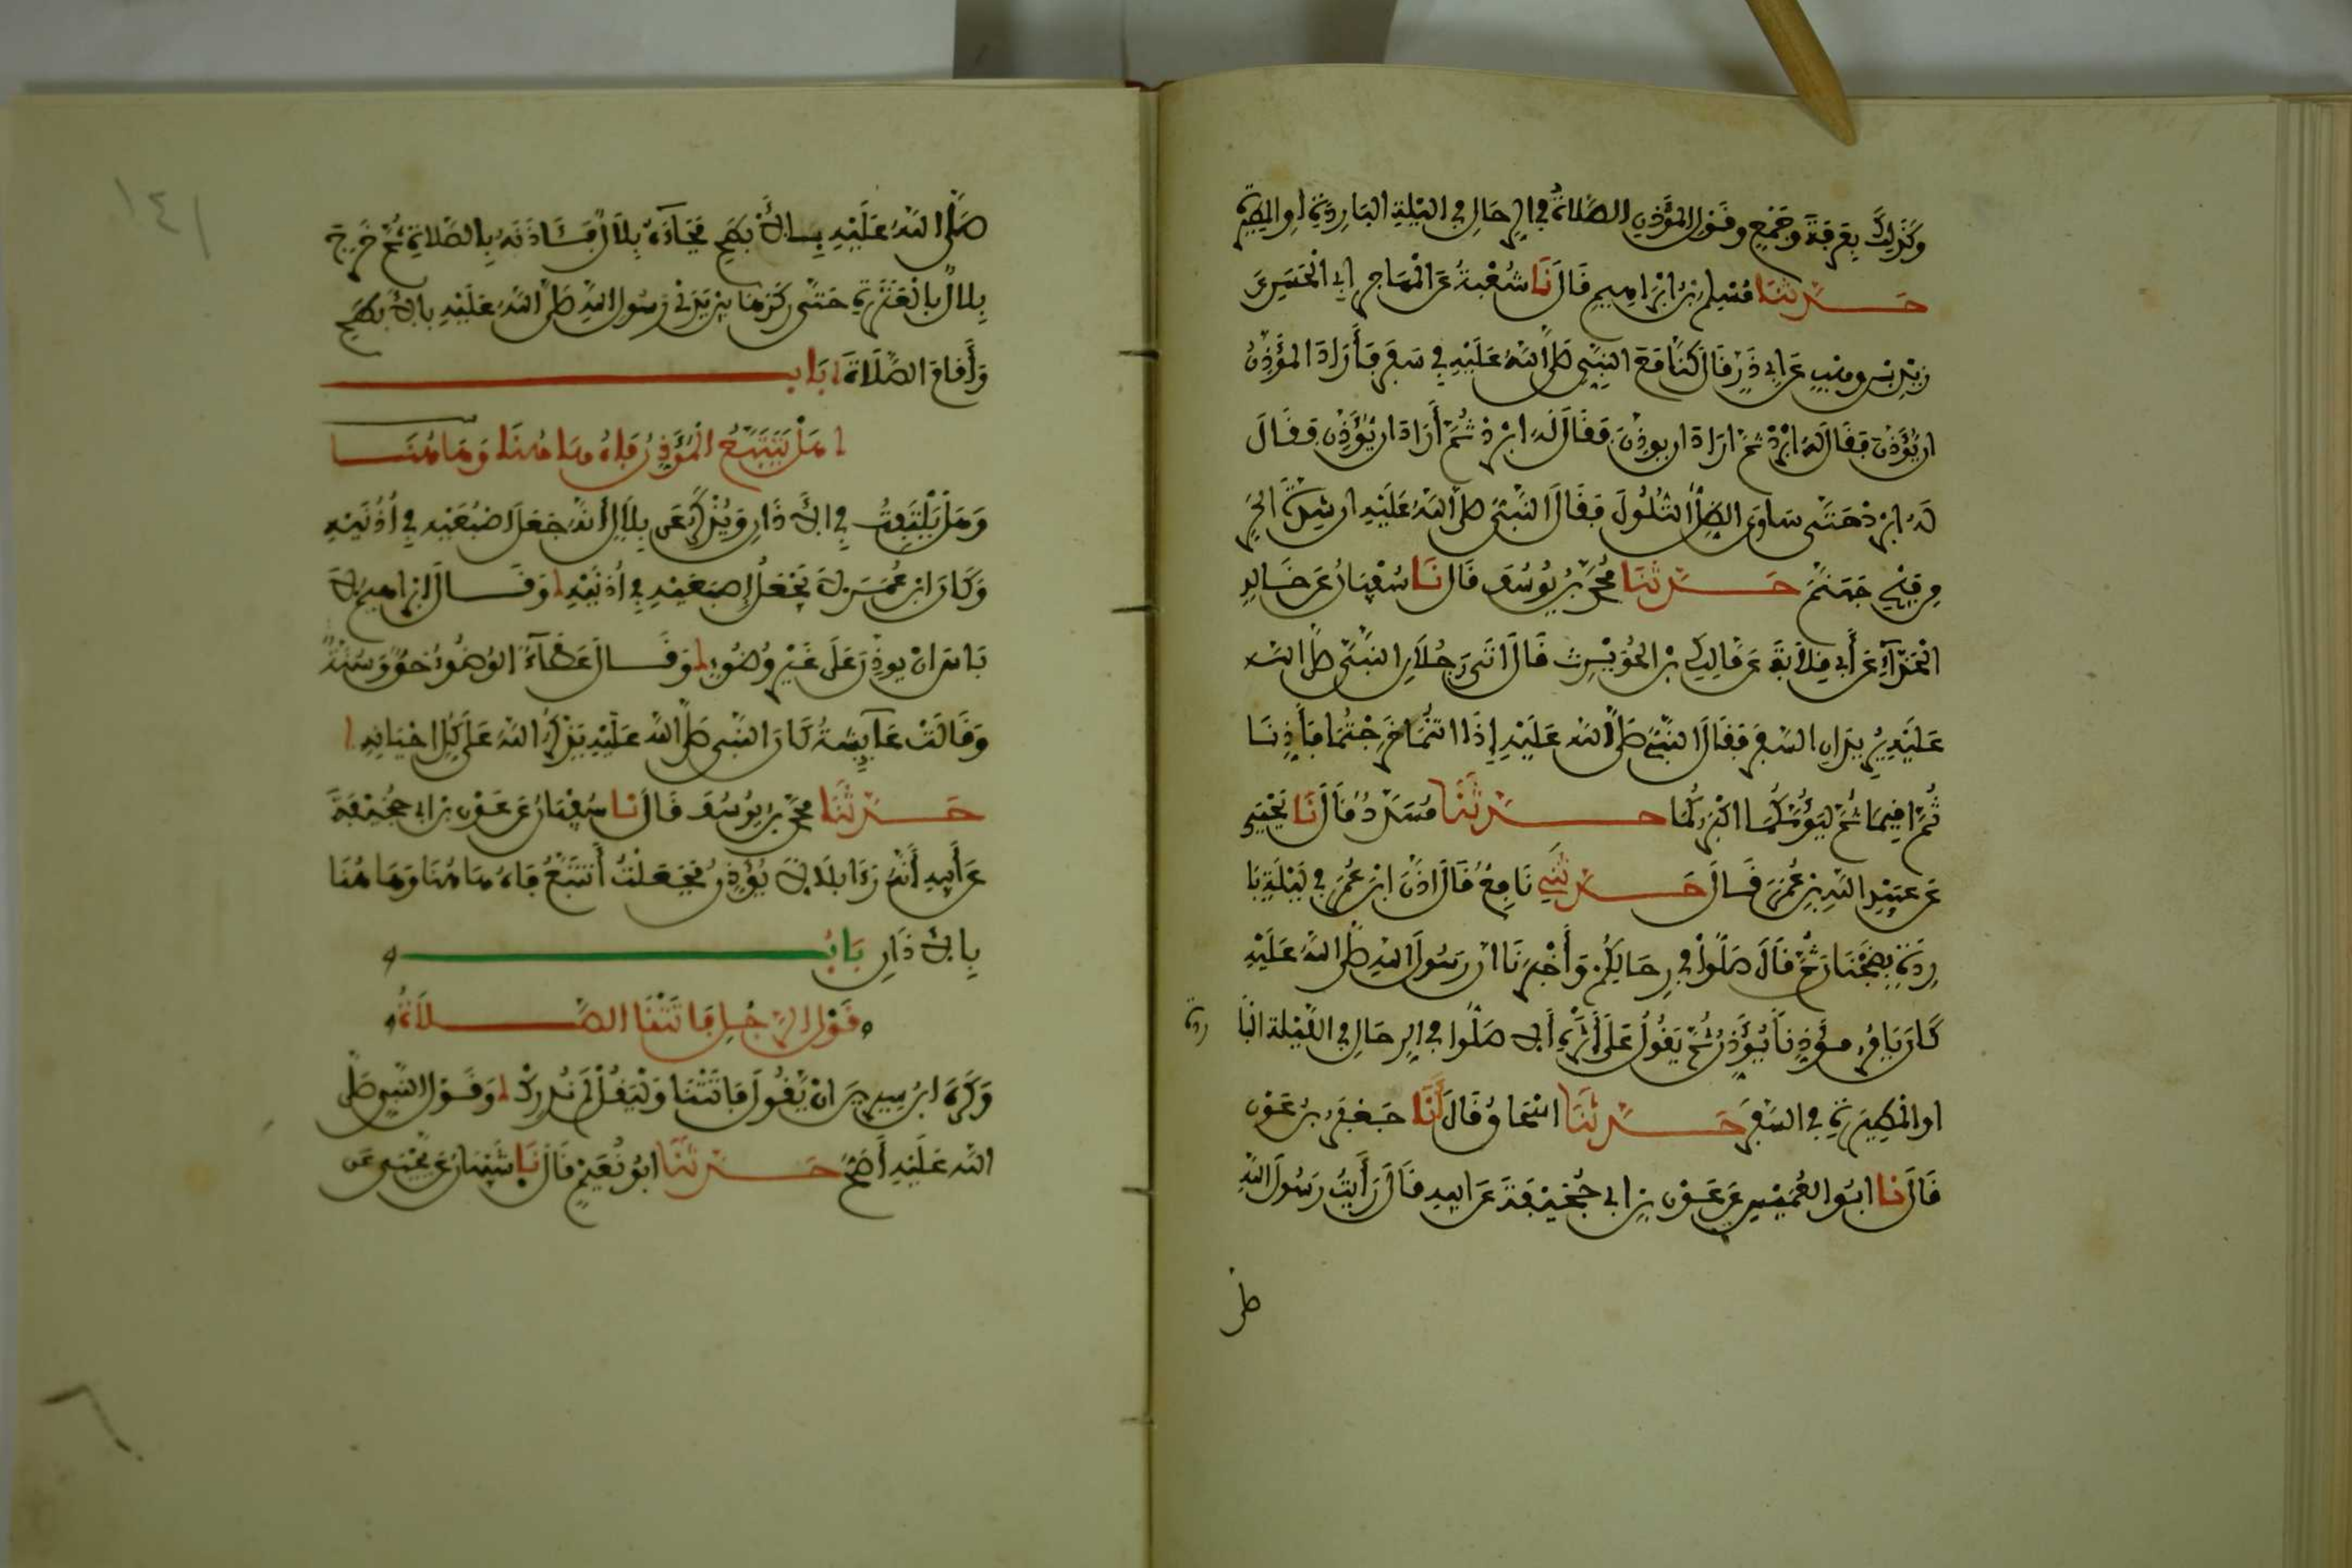 وَكَذَلِكَ بِعَرَفَةَ وَجَمْعٍ وقَوْلِ المُؤَذِّنِ الصَّلاةُ في الرِحَالِ في الليْلةِ البَارِدَةِ اوِ المَطِيرَةِ
حَدَّثَنَا مُسْلِمُ بْنُ ابْرَاهِيمِ قَالَ نَا شُعْبَةُ عَنِ الْمُهَاجِرِ ابي الْحَسَنِ عَنْ
زَيْدِ بْنِ وهْبٍ عَن ابي ذَرٍّ قَالَ كُنَّا مَعَ النبيِّ صَلَّى اللَّهُ عَلَيْهِ في سَفَرٍ فَأَرَادَ المُؤَذِّنُ
ان يُؤَذِّنَ فَقَالَ لَهُ ابْرِدْ ثُمَّ ارَادَ ان يوذِّنَ فَقَالَ لَهُ ابْرِدْ ثُمَّ أَرَادَ ان يُؤَذِّنَ فَقَالَ
لَهُ ابْرِدْ حَتَّى سَاوَى الظِّلُّ التُّلُولَ فَقَالَ النَّبِيُّ صلَّى اللَّهُ عَلَيْهِ ان شِدَّةَ الحَرِّ
مِن فَيْحِ جَهَنَّمَ حَدَّثَنَا مُحَمَّدُ بْنُ يُوسُفَ قَالَ نَا سُفْيَانُ عَنْ خَالِدٍ
الْحَذَّاءِ عَنْ أَبي قِلاَبَةَ عَنْ مَالِكِ بْنِ الحُوَيْرِثِ قَالَ اتَى رَجُلاَنِ النبيَّ صلَّى اللَّه
عَلَيْهِ يُرِيدَانِ السَّفَرَ فَقَالَ النبيُّ صَلَّى اللَّهُ عَلَيْهِ إِذَا انتُمَا خَرَجْتُمَا فَأَذِّنَا
ثُمَّ اقِيمَا ثُمَّ لِيَؤُمَّكُمَا اكْبَرُكُمَا حَدَّثَنَا مُسَدَّدٌ قَالَ نَا يَحْيَى
عَنْ عبَيْدِ اللَّهِ بْنِ عُمَرَ قَالَ حَدَّثَنِي نَافِعٌ قَالَ اذَّنَ ابْنُ عُمَرَ في لَيْلَةٍ بَا
رِدَةٍ بِضَجْنَانَ ثُمَّ قَالَ صَلُّوا في رِحَالِكُمْ وَأَخْبَرَنَا انَّ رَسُولَ اللهِ صلَّى اللَّهُ عَلَيْهِ
كَانَ يَامُرُ مؤَذِّناً يُؤَذِّنُ ثُمَّ يَقُولُ عَلَى أَثَرِهِ أَلا صَلُّوا في الرِحَالِ في اللَّيْلة البَا
ردة
او الْمَطِيرَةِ في السَّفَرِ حَدَّثَنَا اسْحَاقُ قَالَ أَنَا جَعْفَرُ بْنُ عَوْنٍ
قَالَ نا ابُو العُمَيْسِ عَنْ عَوْنِ بْنِ ابي جُحَيْفَةَ عَنَ ابيهِ قَالَ رَأَيْتُ رَسُولَ اللَّهِ
صلى
صَلَّى اللَّهُ عَلَيْهِ بِالأَبْطَحِ فَجَاءَهُ بِلاَلٌ فَآذَنَهُ بِالصَّلاَةِ ثُمَّ خَرَجَ
بِلاَلٌ بالْعَنَزَةِ حَتَّى رَكَزَهَا بَيْنَ يَدَيْ رَسُولِ اللهِ صَلَّى اللَّهُ عَلَيْهِ بالأَبْطَحِ
وَأَقَامَ الصَّلاَةَ بَاب
هَلْ يَتَتَبَّعُ الْمُؤَذِّنُ فَاهُ هَاهُنَا وَهَاهُنَا
وَهَلْ يَلْتَفِتُ في الأَذَانِ وَيُذْكَرُ عَن بِلاَلٍ أَنَّهُ جَعَلَ اصْبُعَيْهِ في أُذُنَيْهِ
وَكَانَ ابْنُ عُمَرَ لاَ يَجْعَلُ إِصْبَعَيْهِ في أُذُنَيْهِ وَقَالَ ابْرَاهِيمُ لاَ
بَاسَ انْ يوذِّنَ عَلَى غَيْرِ وُضُوءٍ وَقَالَ عَطَاءٌ الوُضُوءُ حَقٌّ وَسُنَّةٌ
وَقَالَتْ عَايِشَةُ كَانَ النَّبي صَلَّى اللَّهُ عَلَيْهِ يَذْكُرُ اللَّهَ عَلَى كُلِّ احْيَانِهِ
حَدَّثَنَا مُحَمَّدُ بْنُ يُوسُفَ قَالَ نا سُفْيَانُ عَنْ عَوْنِ بْنِ ابي جُحَيْفَةَ
عَنْ أَبِيهِ أَنَّهُ رَءَا بِلاَلاً يُؤَذِّنُ فَجَعَلْتُ أَتَتَبَّعُ فَاهُ هَاهُنَا وَهَاهُنَا
بِالأَذَانِ بَابُ
قَوْلِ الرَّجُلِ فَاتَتْنَا الصَّلاَةُ
وَكَرِهَ ابْنُ سِيرِينَ انْ يَّقُولَ فَاتَتْنَا وَلْيَقُلْ لَمْ نُدْرِكْ وَقَوْلُ النَّبِي صَلَّى
اللَّهُ عَلَيْهِ أَصَحُّ حَدَّثَنَا ابُو نُعَيْمٍ قَالَ نَا شَيْبَانُ عَنْ يَحْيَى عَن
١٤١